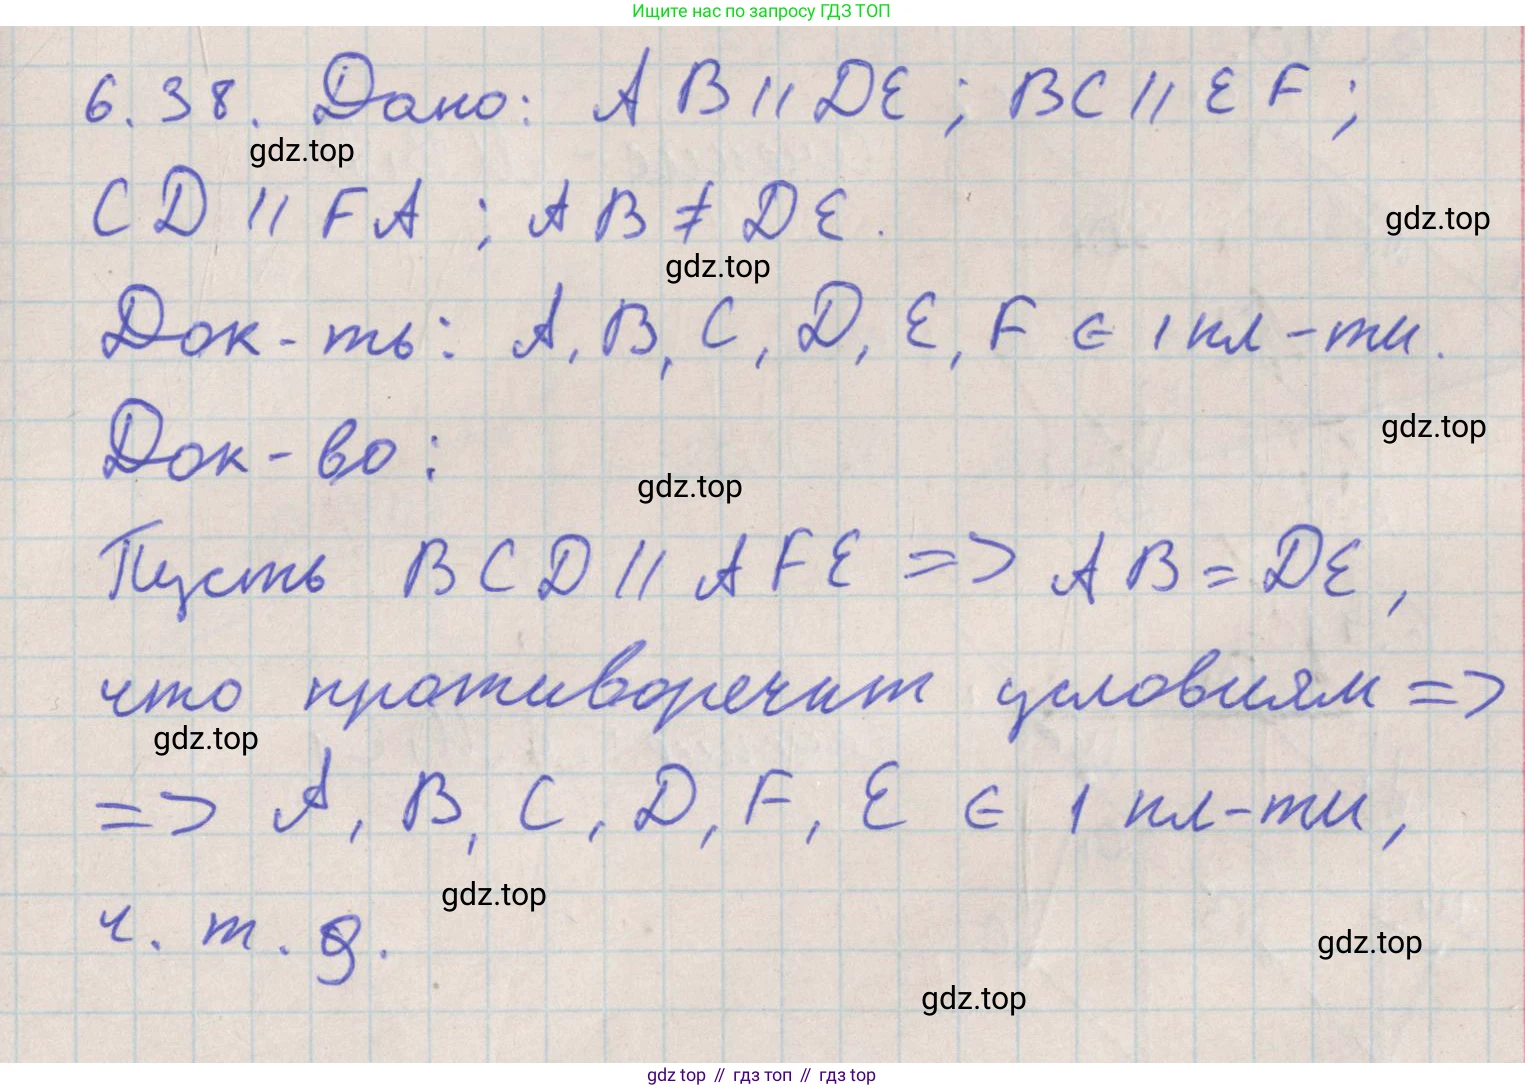 Ищите нас по запросу ГДЗ ТОП
6.38. Дано: AB || DE ; BC || EF ;
gdz.top
CD || FA ; AB ≠ DE.
gdz.top
gdz.top
Док-ть: A, B, C, D, E, F ∈ 1 пл-ти.
gdz.top
Док-во:
gdz.top
Пусть BCD || AFE => AB = DE,
что противоречит условиям =>
gdz.top
=> A, B, C, D, F, E ∈ 1 пл-ти,
gdz.top
ч. т. д.
gdz.top
gdz.top
gdz top // гдз топ // гдз top